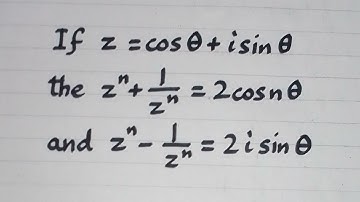 If z = cosθ + i sinθ
the zⁿ + 1/zⁿ = 2cosnθ
and zⁿ - 1/zⁿ = 2i sinθ